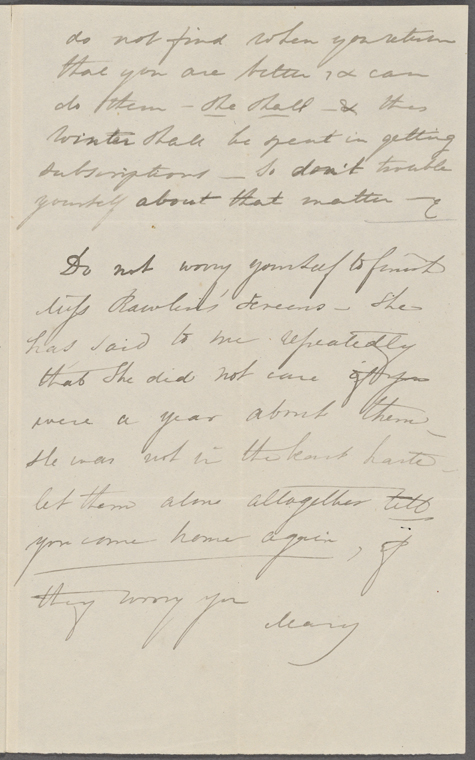 do not find when you return
that you are better & can
do them – she shall – & this
Winter shall be spent in getting
subscriptions – So don't trouble
yourself about that matter –
Do not worry yourself to finish
Miss Rawlins' screens – She
has said to me repeatedly
that She did not care if you
were a year about them –
She was not in the least haste –
let them alone altogether till
you come home again, if
they worry you
Mary